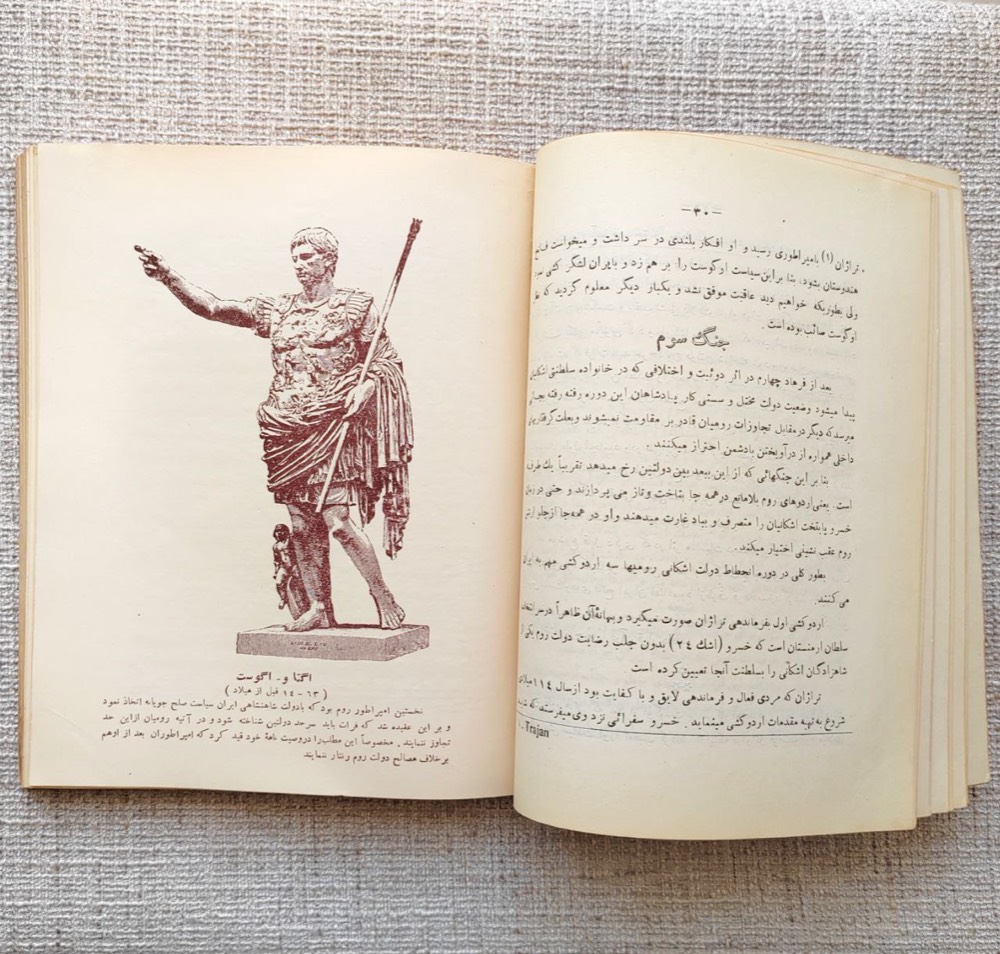 -۳۰-
تراژان (۱) بامپراطوری رسید و او افکار بلندی در سر داشت و میخواست فاتح
هندوستان بشود، بنا بر این سیاست اوگوست را بر هم زد و بایران لشگر کشی نمود
ولی بطوریکه خواهیم دید عاقبت موفق نشد و یکبار دیگر معلوم گردید که نظر
اوگوست صائب بوده است.
جنگ سوم
بعد از فرهاد چهارم در اثر دوئیت و اختلافی که در خانواده سلطنتی اشکانیان
پیدا میشود وضعیت دولت مختل و سستی کار پادشاهان این دوره رفته رفته بجائی
میرسد که دیگر در مقابل تجاوزات رومیان قادر بر مقاومت نمیشوند و بعلت گرفتاریهای
داخلی همواره از درآویختن بادشمن احتراز میکنند.
بنا بر این جنگهائی که از این ببعد بین دولتین رخ میدهد تقریباً یك طرفی
است. یعنی اردوهای روم بلامانع در همه جا بتاخت وتاز می پردازند و حتی در زمان
خسرو پایتخت اشکانیان را متصرف و بباد غارت میدهند و او در همه جا از جلو اردوی
روم عقب نشینی اختیار میکند.
بطور کلی در دوره انحطاط دولت اشکانی رومیها سه اردو کشی مهم به ایران
می کنند.
اردوکشی اول بفرماندهی تراژان صورت میگیرد و بهانهٔ آن ظاهراً در سر انتخاب
سلطان ارمنستان است که خسرو (اشك ۲۴) بدون جلب رضایت دولت روم یکی از
شاهزادگان اشکانی را بسلطنت آنجا تعیین کرده است
تراژان که مردی فعال و فرماندهی لایق و با کفایت بود از سال ۱۱۴ میلادی
شروع به تهیه مقدمات اردو کشی مینماید. خسرو سفرائی نزد وی میفرستد که
Trajan
اگتا و۔ اگوست
(۶۳-۱۴ قبل از میلاد)
نخستین امپراطور روم بود که بادولت شاهنشاهی ایران سیاست صلح جویانه اتخاذ نمود
و بر این عقیده شد که فرات باید سرحد دولتین شناخته شود و در آتیه رومیان ازاین حد
تجاوز ننمایند. مخصوصاً این مطلب را دروصیت نامهٔ خود قید کرد که امپراطوران بعد از اوهم
برخلاف مصالح دولت روم رفتار ننمایند